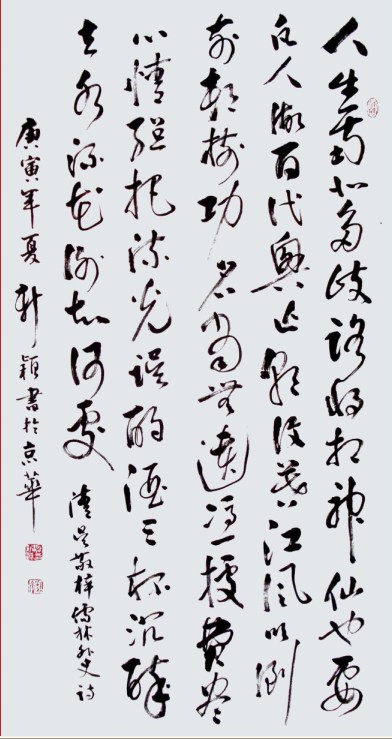 人生南北多歧路將相神仙也要
凡人做百代興亡朝復暮江風吹倒
前朝樹功名富貴無憑據費盡
心情總把流光誤濁酒三杯沉醉
去水流花謝知何處 清吳敬梓儒林外史詩
庚寅年夏 穎書於京華